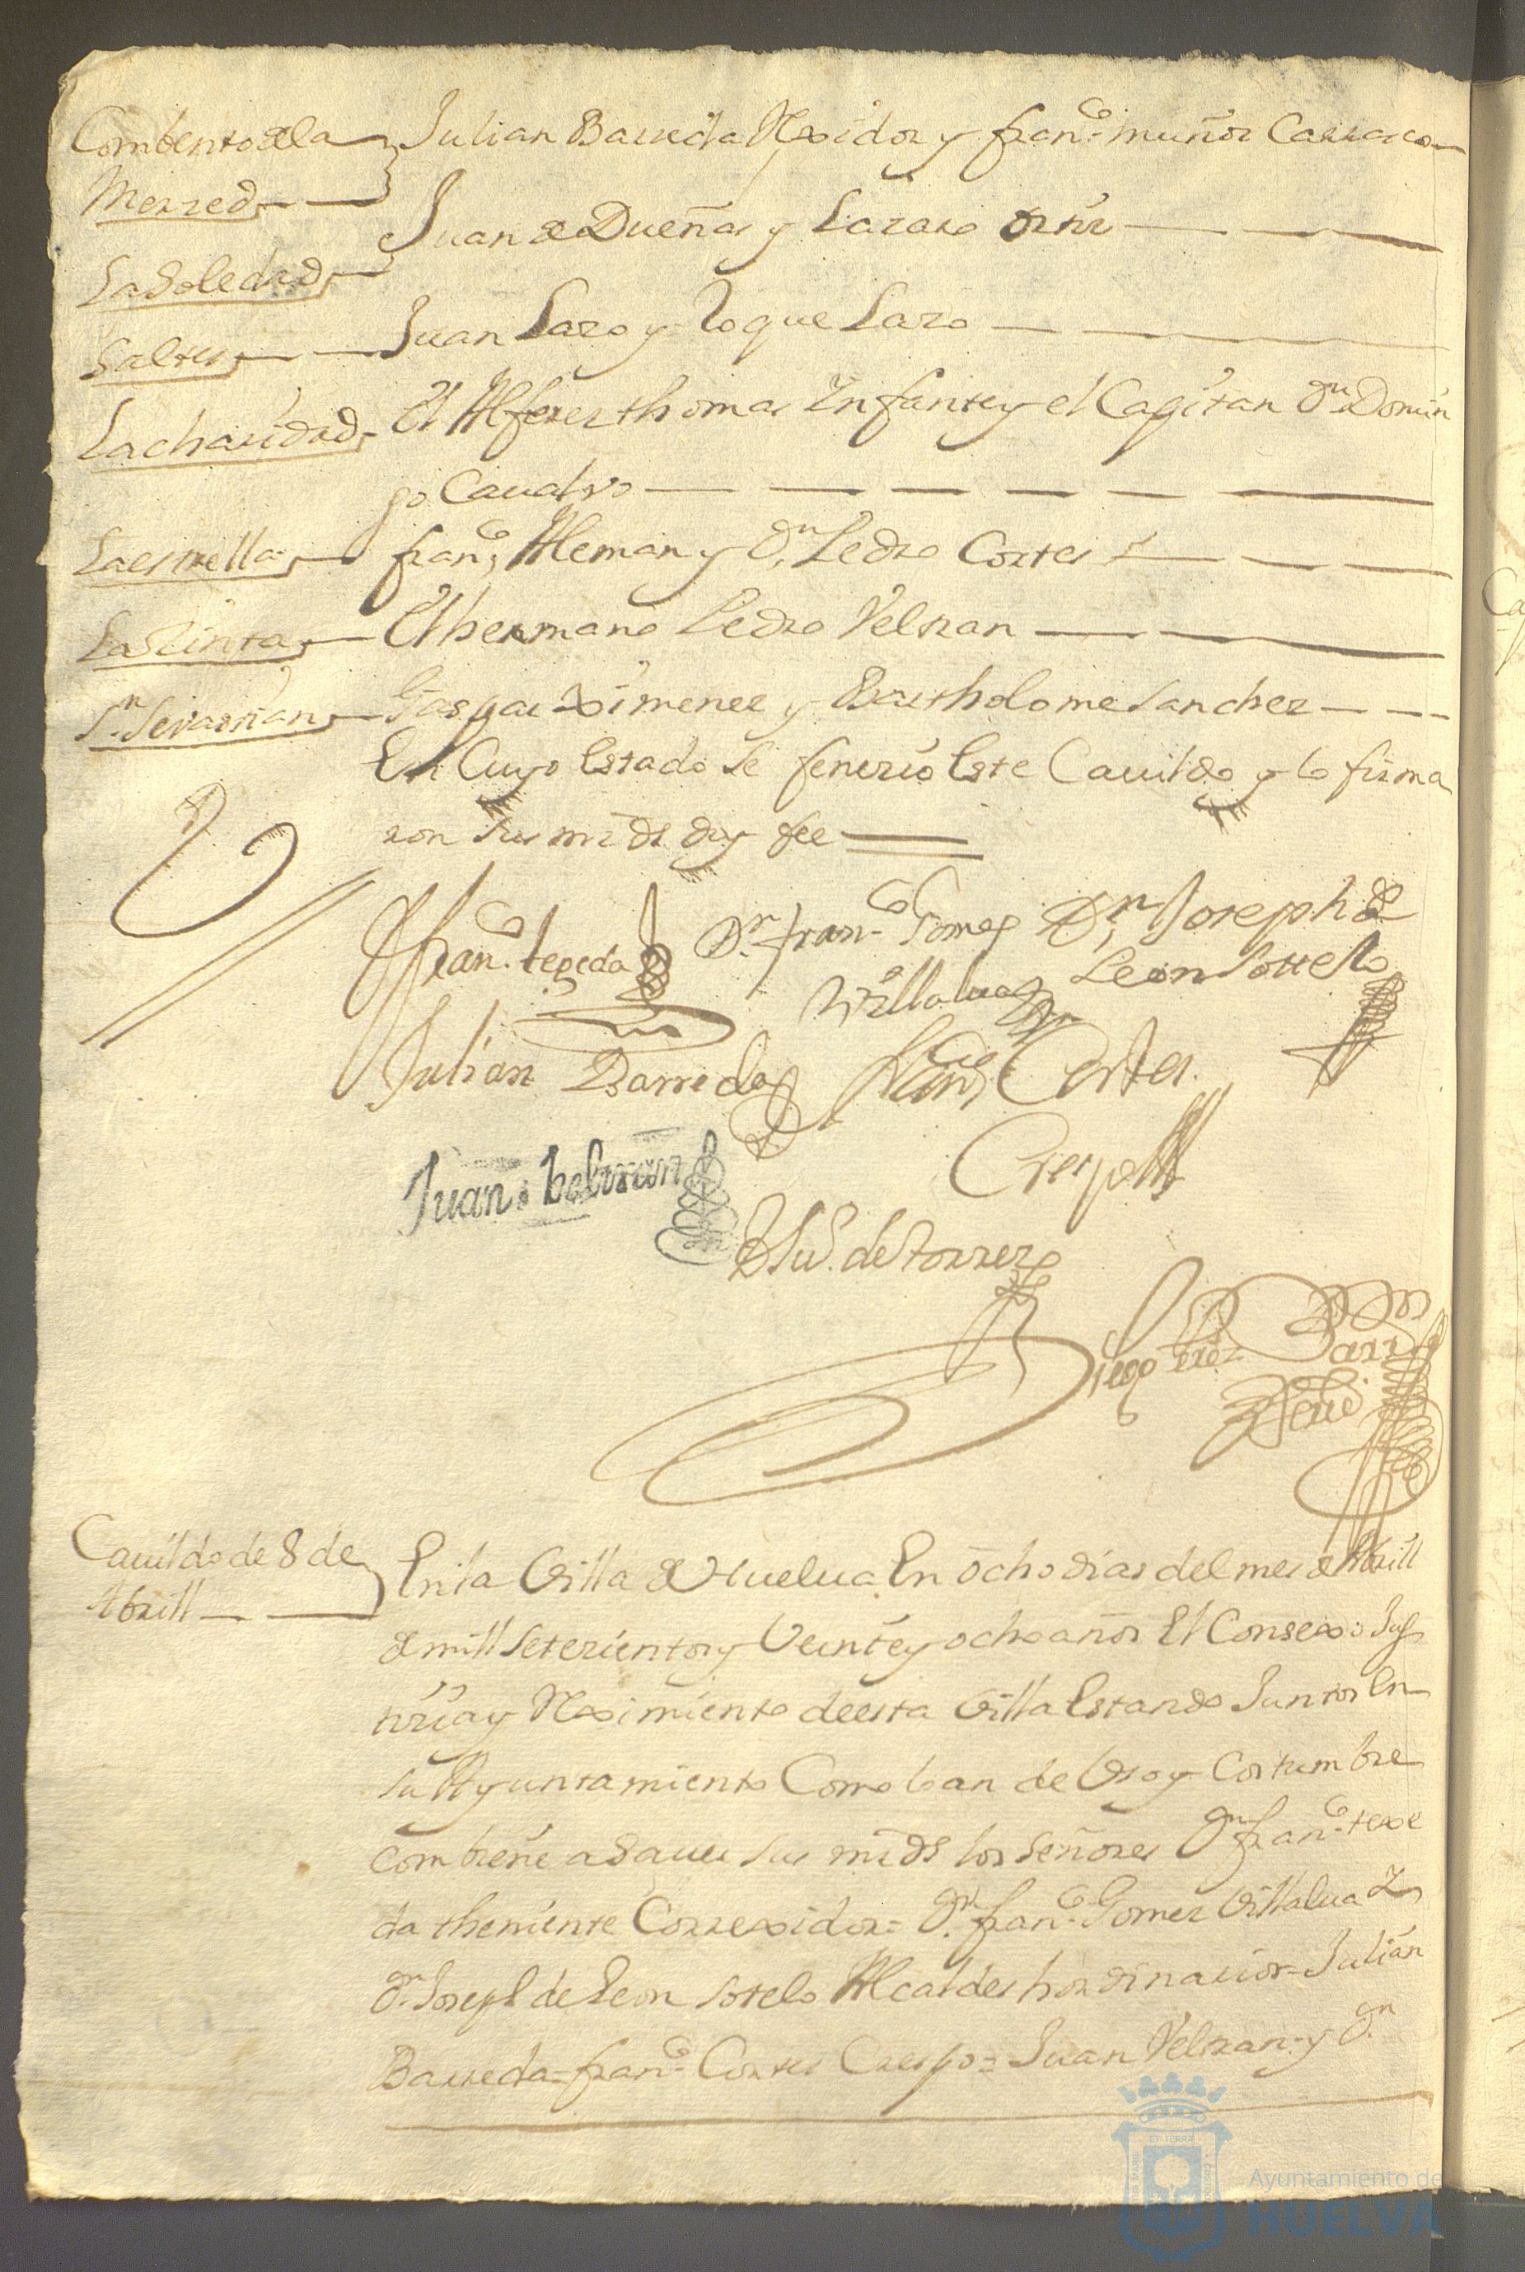 Combento de la
Merzed
Julian Barreda Rexidor y franco muñoz Carrasco
La Soledad
Juan de Dueñas y Lazaro ortiz
Saltes
Juan Lazo y Roque Lazo
La charidad
El Alferez thomas Infante y el Capitan Dn Domin
go Caualyo
La estrella
franco Aleman y Dn Pedro Cortes
La Sinta
El hermano Pedro Velran
Sn Sevastian
Gaspar Ximenez y Bartholome Sanchez
En Cuyo Estado se fenezio Este Cauildo y lo firma
ron sus mrds doy fee
Franco texeda
Dn franco Gomez
Villalua
Dn Joseph de
Leon Sottelo
Julian Barreda
Franco Cortes
Crespo
Juan beltran
Su de torres
Diego Barr
Cauildo de 8 de
Abrill
En la Villa de Huelua En ocho dias del mes de Abrill
de mill setezientos y Veinte y ocho años El Consexo Jus
tizia y Reximiento de esta Villa Estando Juntos En
su Ayuntamiento Como lo an de Uso y Costumbre
combiene a sauer sus mrds los señores Dn franco texe
da theniente Correxidor = Dn franco Gomez Villalua Y
Dn Joseph de Leon sotelo Alcaldes hordinarios = Julian
Barreda = franco Cortes Crespo = Juan Velran y Dn
Ayuntamiento de
HUELVA